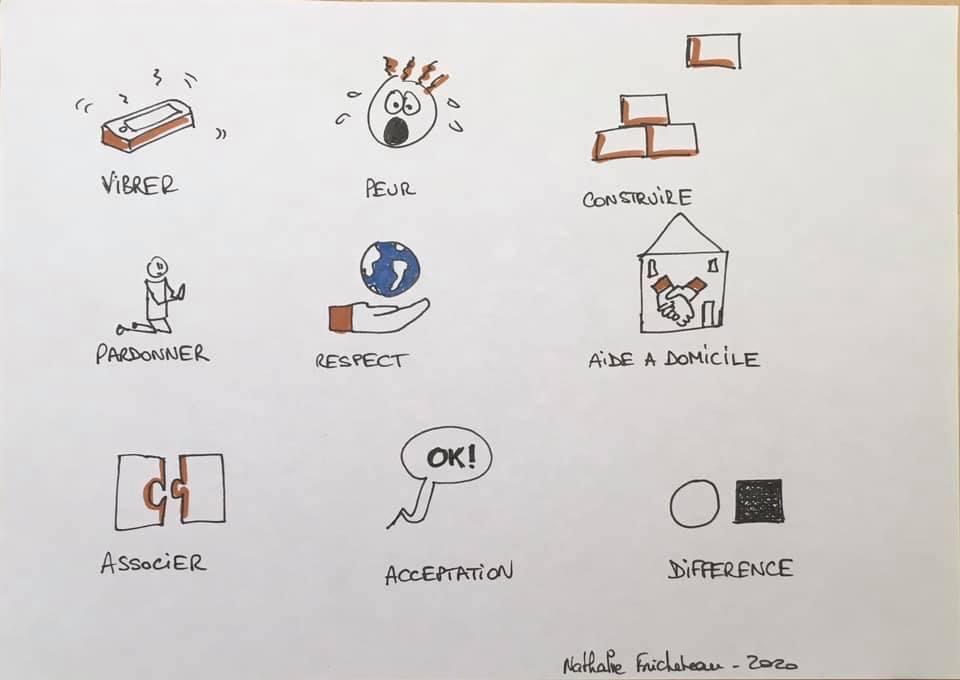 VIBRER
PEUR
CONSTRUIRE
PARDONNER
RESPECT
AIDE A DOMICILE
ASSOCIER
OK!
ACCEPTATION
DIFFERENCE
Nathalie - 2020